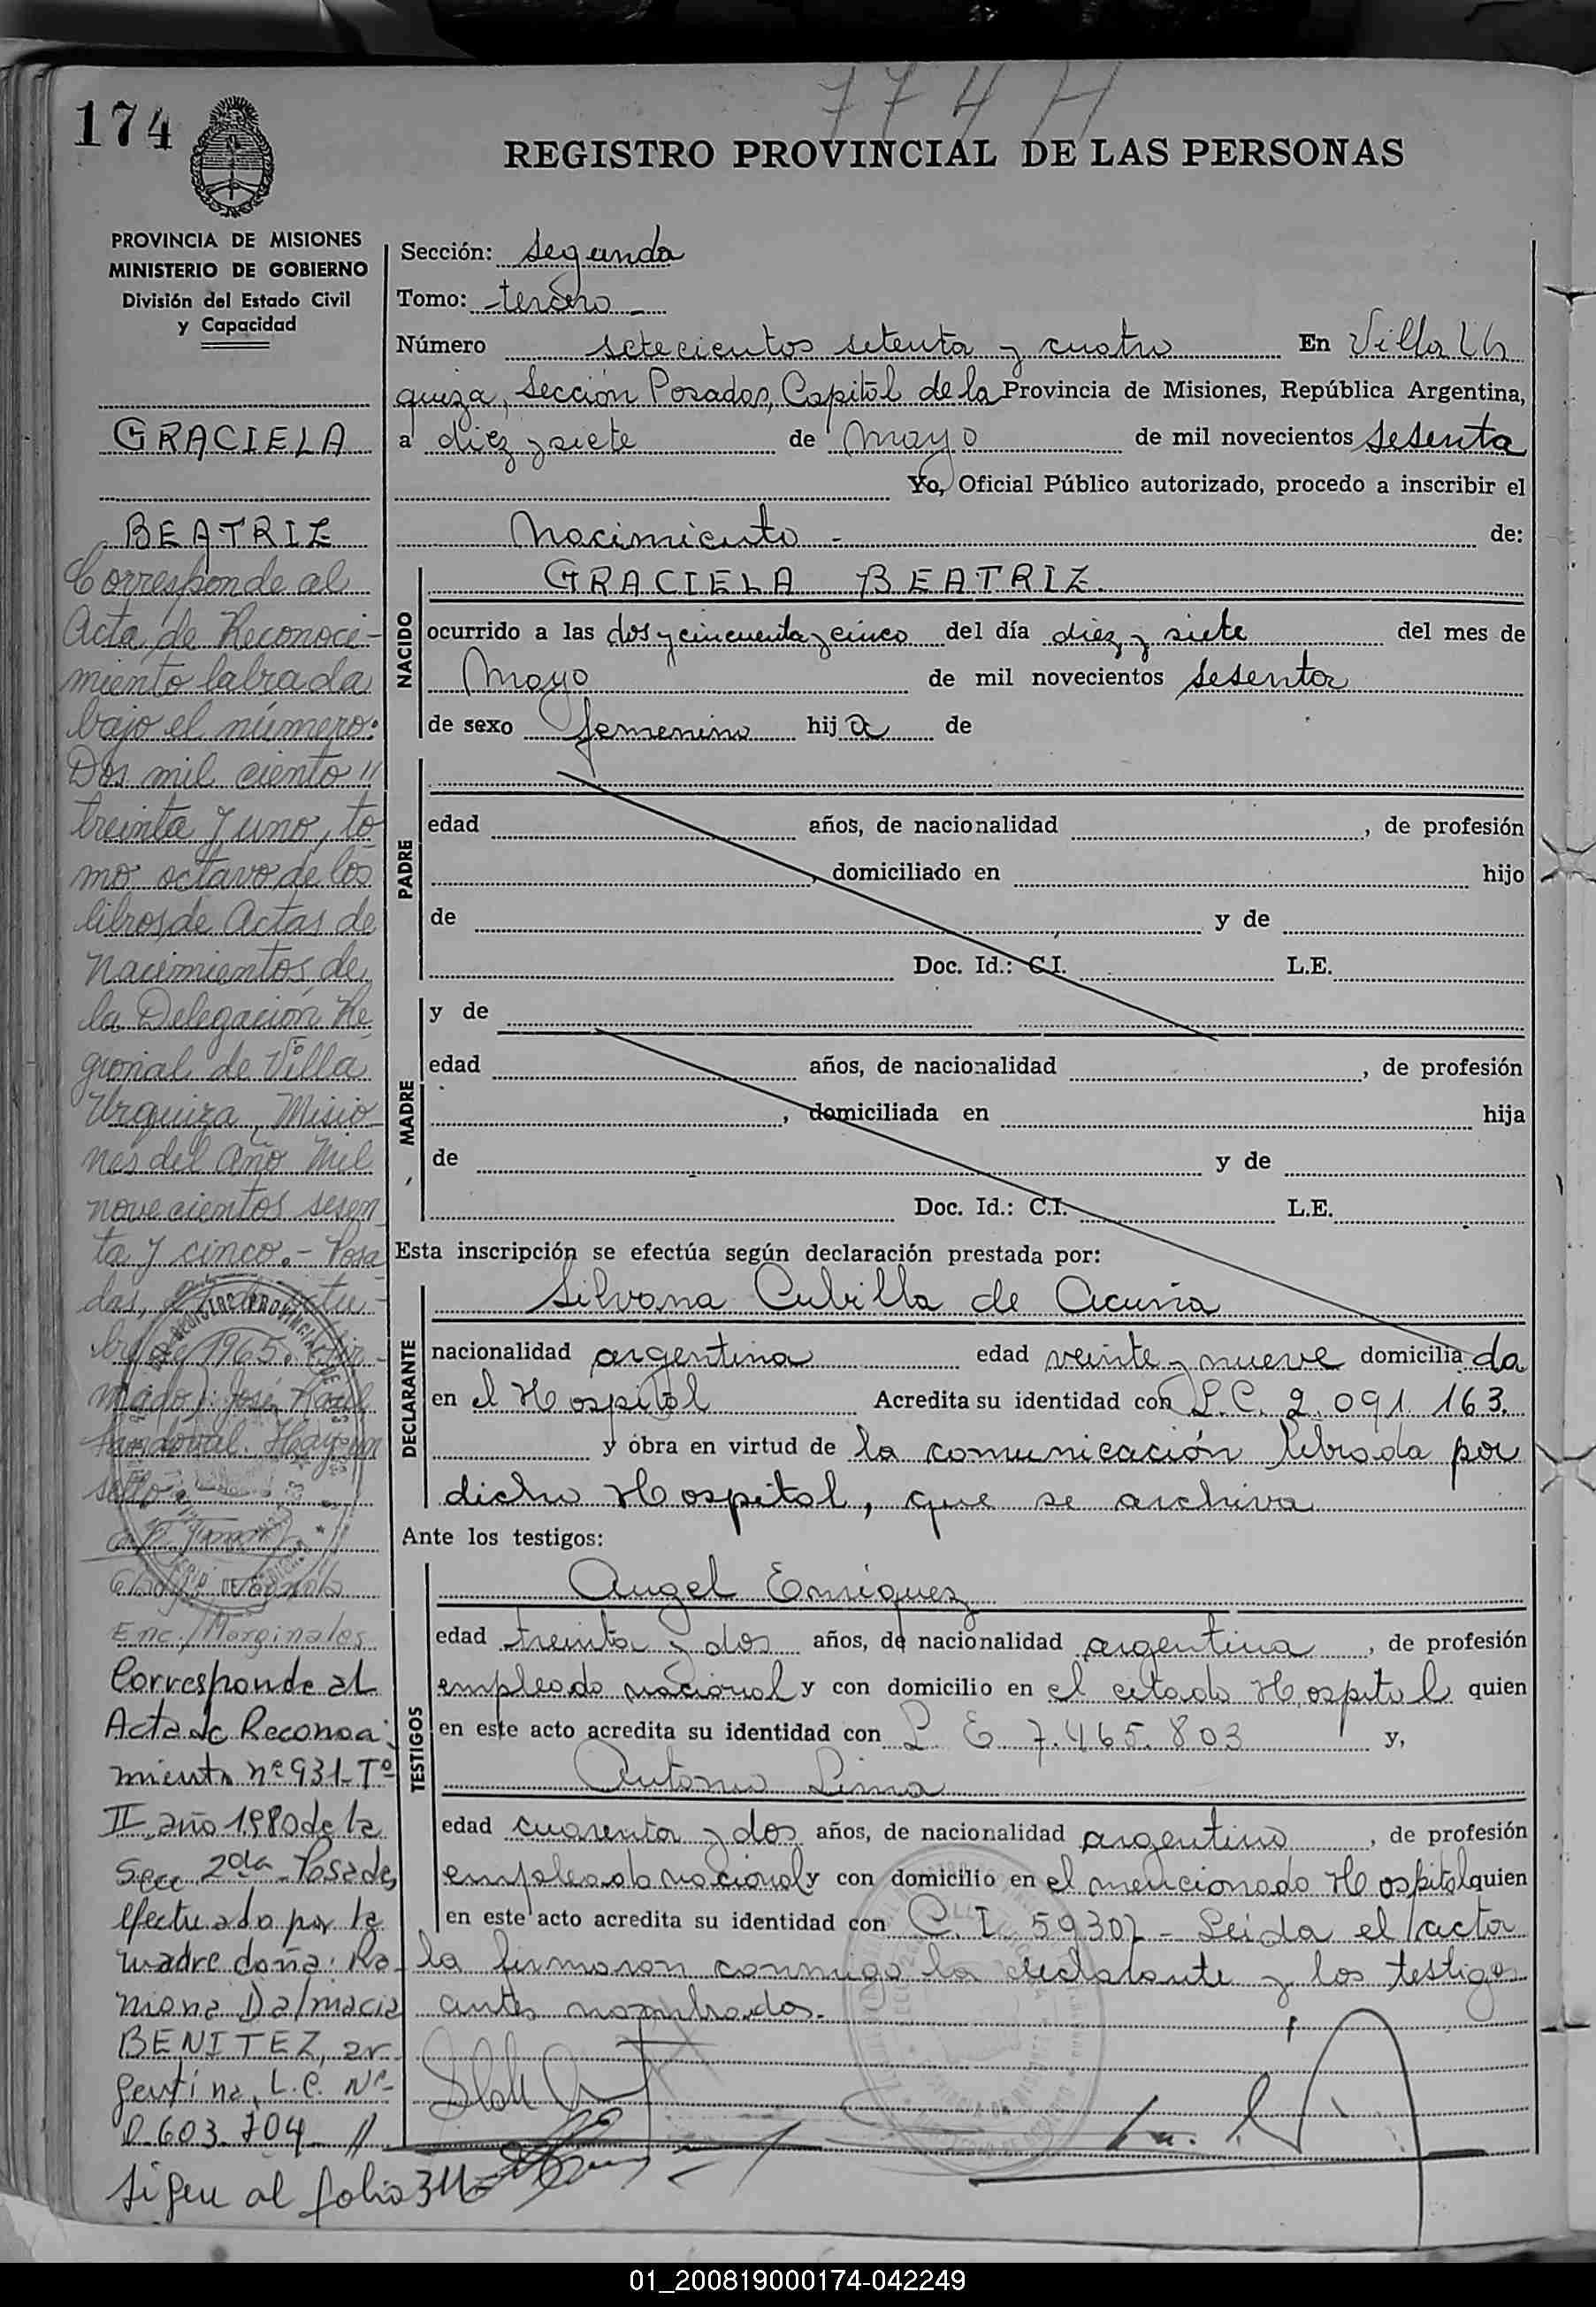 774 H
174
REGISTRO PROVINCIAL DE LAS PERSONAS
PROVINCIA DE MISIONES
MINISTERIO DE GOBIERNO
División del Estado Civil
y Capacidad
GRACIELA
BEATRIZ
Corresponde al
Acta de Reconoci-
miento labrada
bajo el número:
Dos mil ciento "
treinta y uno, to
mo octavo de los
libros de Actas de
Nacimientos de
la Delegación Re
gional de Villa
Urquiza, Misio
nes del Año Mil
novecientos sesen
ta y cinco.- Posa
das, de octu-
bre de 1965. Fir-
mado): José Raúl
Sandoval. Hay un
sello.
Enc./Marginales
Corresponde al
Acta de Reconoci-
miento nº 931-Tº
II año 1980 de la
Secc 2da Posadas
efectuado por la
madre doña: Ra-
mona Dalmacia
BENITEZ, ar-
gentina, L.C. Nº-
0.603.704 //
Sigue al folio 311
Sección: segunda
Tomo: -tercero-
Número setecientos setenta y cuatro En Villa Ur
quiza, Sección Posadas, Capital de la Provincia de Misiones, República Argentina,
a diez y siete de mayo de mil novecientos sesenta
Yo, Oficial Público autorizado, procedo a inscribir el
Nacimiento - de:
NACIDO
GRACIELA BEATRIZ.
ocurrido a las dos y cincuenta y cinco del día diez y siete del mes de
Mayo de mil novecientos sesenta
de sexo femenino hij a de
PADRE
edad años, de nacionalidad , de profesión
, domiciliado en hijo
de y de
Doc. Id.: C.I. L.E.
MADRE
y de
edad años, de nacionalidad , de profesión
, domiciliada en hija
de y de
Doc. Id.: C.I. L.E.
Esta inscripción se efectúa según declaración prestada por:
DECLARANTE
Silvana Cubilla de Acuña
nacionalidad argentina edad veinte y nueve domicilia da
en el Hospital Acredita su identidad con L.C. 2.091.163.
y obra en virtud de la comunicación librada por
dicho Hospital, que se archiva
Ante los testigos:
TESTIGOS
Angel Enriquez
edad treinta y dos años, de nacionalidad argentina , de profesión
empleado nacional y con domicilio en el citado Hospital quien
en este acto acredita su identidad con L E 7.465.803 y,
Antonio Lima
edad cuarenta y dos años, de nacionalidad argentino , de profesión
empleado nacional y con domicilio en el mencionado Hospital quien
en este acto acredita su identidad con C. I. 59307 - Leida el acta
la firmaron conmigo la declarante y los testigos
antes nombrados.-
01_200819000174-042249